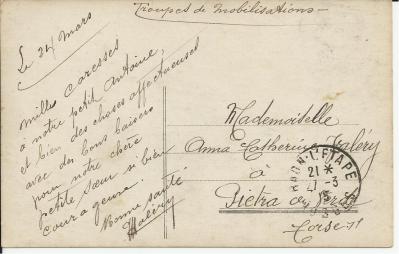 Troupes de Mobilisations
Le 24 Mars
Milles caresses
à notre petit Antoine,
et bien des choses affectueuses
avec des bons baisers
pour notre chère
petite sœur si bien
courageuse.
Bonne santé
Valéry
Mademoiselle
Anna Catherine Valéry
à
Pietra
Corse
RAON-L'ETAPE
21 *
-3